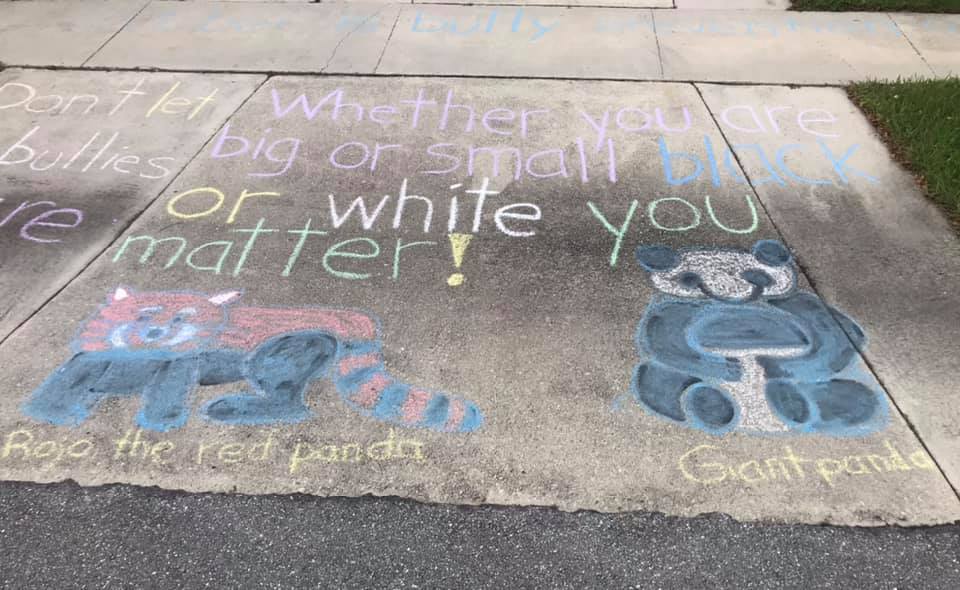 bully
Don't let
bullies
Whether you are
big or small black
or white you
matter!
Rojo the red panda
Giant panda